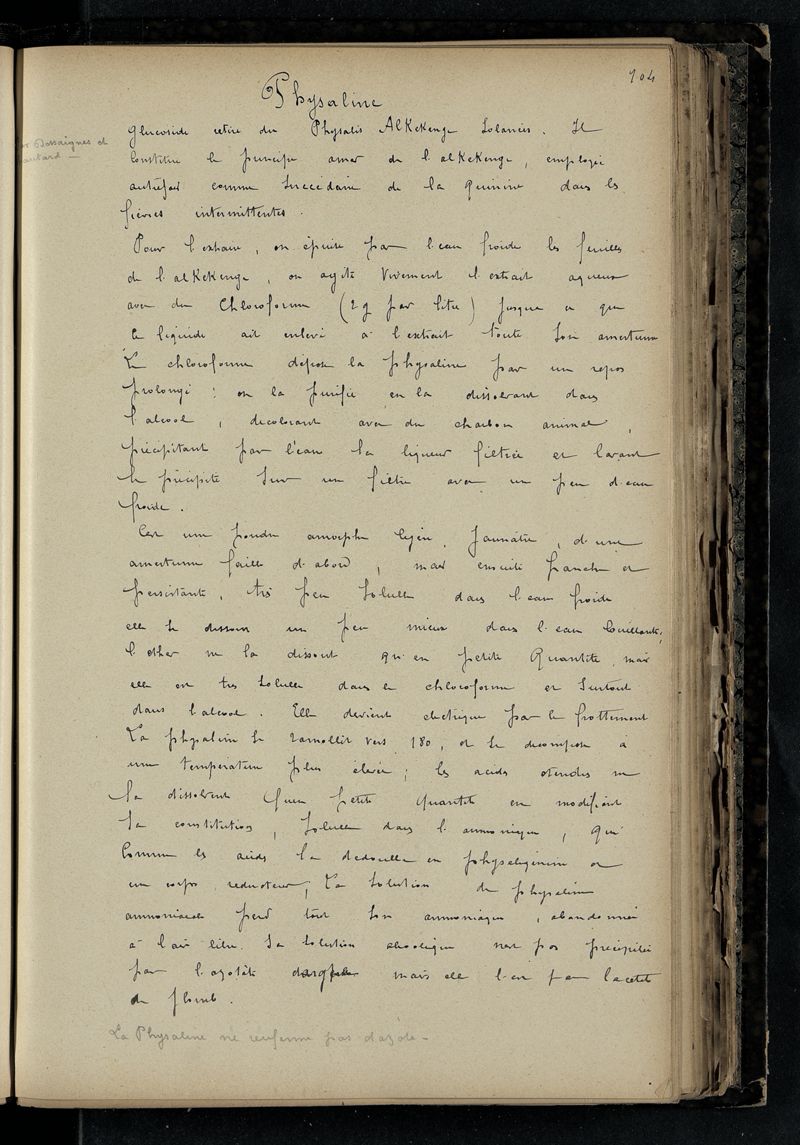 104
Physaline
Glucoside retiré du Physalis AlKeKenge Solanées. Il
Dessaignes et
constitue le principe amer de l'alKeKenge, employé
autard —
autrefois comme succédané de la quinine dans les
fièvres intermittentes.
Pour l'extraire, on épuise par l'eau froide les feuilles
de l'alKeKenge, on agite vivement l'extrait aqueux
avec du Chloroforme (2 g par litre) jusqu'à ce que
le liquide ait enlevé à l'extrait toute son amertume
Le chloroforme dépose la physaline par un repos
prolongé ; on la purifie en la dissolvant dans
l'alcool, décolorant avec du charbon animal,
précipitant par l'eau la liqueur filtrée et lavant
le précipité sur un filtre avec un peu d'eau
froide.
C'est une poudre amorphe légère, jaunâtre, d'une
amertume faible d'abord, mais ensuite franche et
persistante, très peu soluble dans l'eau froide
elle se dissout un peu mieux dans l'eau bouillante,
l'ether ne la dissout qu'en petite quantité, mais
elle est très soluble dans le chloroforme et surtout
dans l'alcool. Elle devient electrique par le frottement
La physaline se ramollit vers 180, et se decompose à
une température plus élevée ; les acides etendus ne
la dissolvent qu'en petite quantité en modifiant
sa constitution, soluble dans l'ammoniaque, qui
comme les acides la dedouble en et
un corps reducteur ; La solution de physaline
ammoniacale perd tout son ammoniaque, abandonnée
à l'air libre. Sa solution alcoolique n'est pas précipitée
par l'azotate d'argent mais elle l'est par l'acetate
de plomb.
La Physaline ne renferme pas d'azote —